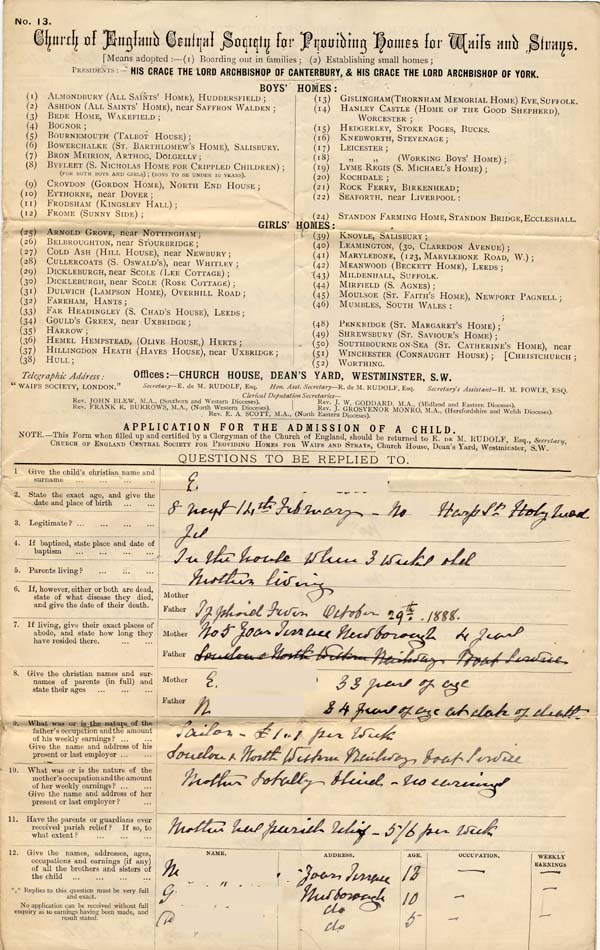 No. 13.
Church of England Central Society for Providing Homes for Waifs and Strays.
[Means adopted:—(1) Boarding out in families; (2) Establishing small homes;
Presidents:—HIS GRACE THE LORD ARCHBISHOP OF CANTERBURY, & HIS GRACE THE LORD ARCHBISHOP OF YORK.
BOYS' HOMES:
(1) Almondbury (All Saints' Home), Huddersfield;
(2) Ashdon (All Saints' Home), near Saffron Walden;
(3) Bede Home, Wakefield;
(4) Bognor;
(5) Bournemouth (Talbot House);
(6) Bowerchalke (St. Barthlomew's Home), Salisbury.
(7) Bron Meirion, Arthog, Dolgelly;
(8) Byfleet (S. Nicholas Home for Crippled Children);
(for both boys and girls); (boys to be under 10 years).
(9) Croydon (Gordon Home), North End House;
(10) Eythorne, near Dover;
(11) Frodsham (Kingsley Hall);
(12) Frome (Sunny Side);
(13) Gislingham (Thornham Memorial Home) Eye, Suffolk.
(14) Hanley Castle (Home of the Good Shepherd),
Worcester;
(15) Hedgerley, Stoke Poges, Bucks.
(16) Knebworth, Stevenage;
(17) Leicester;
(18) „ „ (Working Boys' Home);
(19) Lyme Regis (S. Michael's Home);
(20) Rochdale;
(21) Rock Ferry, Birkenhead;
(22) Seaforth, near Liverpool:
(24) Standon Farming Home, Standon Bridge, Eccleshall.
GIRLS' HOMES:
(25) Arnold Grove, near Nottingham;
(26) Belbroughton, near Stourbridge;
(27) Cold Ash (Hill House), near Newbury;
(28) Cullercoats (S. Oswald's), near Whitley;
(29) Dickleburgh, near Scole (Lee Cottage);
(30) Dickleburgh, near Scole (Rose Cottage);
(31) Dulwich (Lampson Home), Overhill Road;
(32) Fareham, Hants;
(33) Far Headingley (S. Chad's House), Leeds;
(34) Gould's Green, near Uxbridge;
(35) Harrow;
(36) Hemel Hempstead, (Olive House,) Herts;
(37) Hillingdon Heath (Hayes House), near Uxbridge;
(38) Hull;
(39) Knoyle, Salisbury;
(40) Leamington, (30, Claredon Avenue);
(41) Marylebone, (123, Marylebone Road, W.);
(42) Meanwood (Beckett Home), Leeds;
(43) Mildenhall, Suffolk.
(44) Mirfield (S. Agnes);
(45) Moulsoe (St. Faith's Home), Newport Pagnell;
(46) Mumbles, South Wales:
;
(48) Penkridge (St. Margaret's Home);
(49) Shrewsbury (St. Saviour's Home);
(50) Southbourne-on-Sea (St. Catherine's Home), near
(51) Winchester (Connaught House); [Christchurch;
(52) Worthing.
Telegraphic Address:
"WAIFS SOCIETY, LONDON."
Offices:—CHURCH HOUSE, DEAN'S YARD, WESTMINSTER, S.W.
Secretary—E. de M. RUDOLF, Esq. Hon. Asst. Secretary—R. de M. RUDOLF, Esq. Secretary's Assistant—H. M. FOWLE, ESQ.
Clerical Deputation Secretaries—
Rev. JOHN BLEW, M.A., (Southern and Western Dioceses). Rev. J. W. GODDARD, M.A., (Midland and Eastern Dioceses).
Rev. FRANK R. BURROWS, M.A., (North Western Dioceses). Rev. J. GROSVENOR MONRO, M.A., (Herefordshire and Welsh Dioceses).
Rev. E. A. SCOTT, M.A., (North Eastern Dioceses).
APPLICATION FOR THE ADMISSION OF A CHILD.
NOTE.—This Form when filled up and certified by a Clergyman of the Church of England, should be returned to E. de M. RUDOLF, Esq., Secretary,
Church of England Central Society for Providing Homes for Waifs and Strays, Church House, Dean's Yard, Westminster, S.W.
QUESTIONS TO BE REPLIED TO.
1. Give the child's christian name and
surname ... ... ... ...
E.
2. State the exact age, and give the
date and place of birth ... ...
8 next 14th February – No Harp St. Holyhead
3. Legitimate? ... ... ... ...
Yes
4. If baptised, state place and date of
baptism ... ... ... ...
In the house when 3 weeks old
5. Parents living? ... ... ...
Mother living
6. If, however, either or both are dead,
state of what disease they died,
and give the date of their death.
Mother
Father Typhoid Fever October 29th 1888.
7. If living, give their exact places of
abode, and state how long they
have resided there. ... ...
Mother No 5 Joar Terrace Newborough 4 years
Father London & North Western Railways Boat Service
8. Give the christian names and sur-
names of parents (in full) and
state their ages ... ... ...
Mother E. 33 years of age
Father 34 years of age at date of death
9. What was or is the nature of the
father's occupation and the amount
of his weekly earnings? ... ...
Give the name and address of his
present or last employer ... ...
Sailor – £1.1 per week
London & North Western Railways boat Service
10. What was or is the nature of the
mother's occupation and the amount
of her weekly earnings? ... ...
Give the name and address of her
present or last employer? ...
Mother totally blind – no earnings
11. Have the parents or guardians ever
received parish relief? If so, to
what extent? ... ... ...
Mother has parish relief – 5/6 per week
12. Give the names, addresses, ages,
occupations and earnings (if any)
of all the brothers and sisters of
the child ... ... ... ...
*** Replies to this question must be very full
and exact.
No application can be received without full
enquiry as to earnings having been made, and
result stated.
NAME. ADDRESS. AGE. OCCUPATION. WEEKLY EARNINGS.
M Joar Terrace 12 — —
G „ Newborough 10 – –
do
do 5 – –